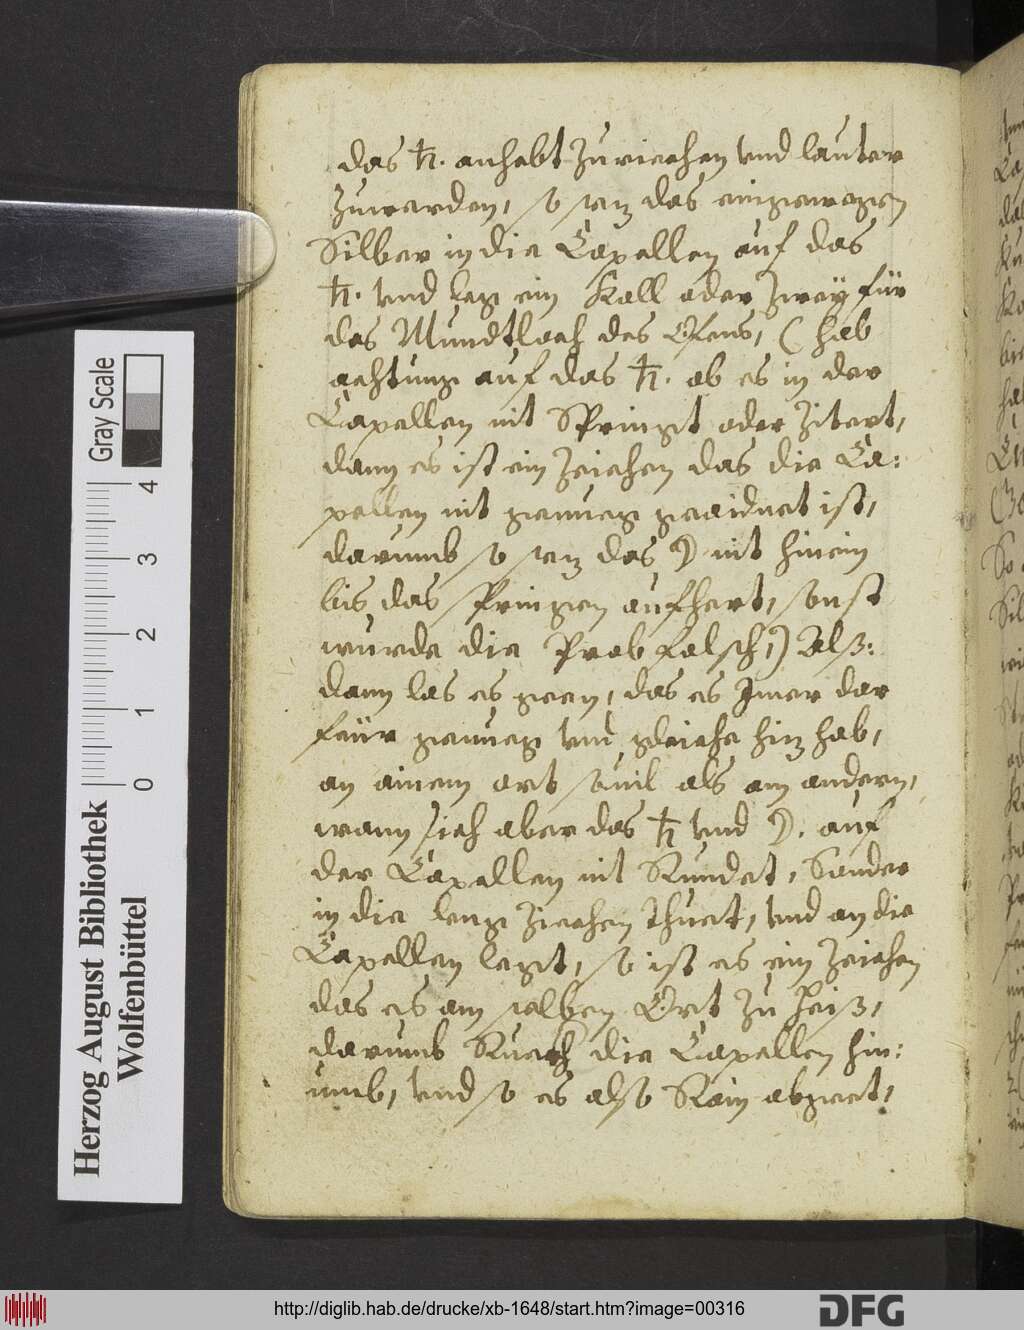 das ♄. anhebt zuriechen vnd lauter
zuwerden, so secz das eingewegen
Silber in die Capellen auf das
♄. vnd leg ein Koll oder zweÿ für
das Mundtloch des Ofens, (hab
achtung auf das ♄. ob es in der
Capellen nit Springt oder Zitert,
dann es ist ein Zeichen das die Ca:
pellen nit genueg geaidnet ist,
darumb so secz das ☽ nit hinein
bis das springen aufhert, sonst
wurde die Prob falsch,) Alß:
dann las es geen, das es Imer der
feür genueg vnd gleiche hicz hab,
an ainem ort souil als am andern,
wann sich aber das ♄ vnd ☽. auf
der Capellen nit Rundet, Sonder
in die leng Ziechen thuet, vnd an die
Capellen legt, so ist es ein Zeichen
das es am selben Ort zu heiß,
darumb Ruckh die Capellen hin:
umb, vnd so es also Rain abgeet,
Gray Scale
4
3
2
1
0
Herzog August Bibliothek
Wolfenbüttel
http://diglib.hab.de/drucke/xb-1648/start.htm?image=00316
DFG